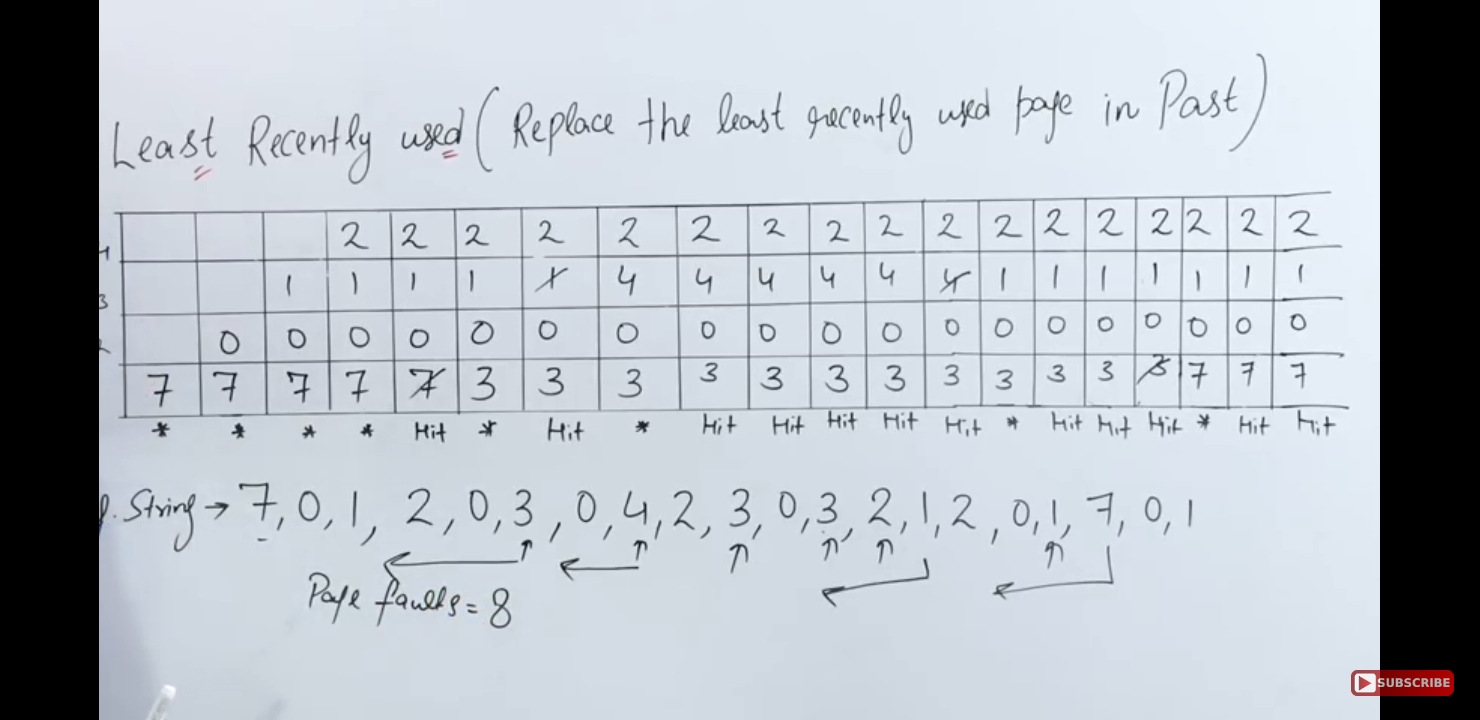 Least Recently used (Replace the least recently used page in Past)
4 2 2 2 2 2 2 2 2 2 2 2 2 2 2 2 2 2
3 1 1 1 1 1 4 4 4 4 4 4 1 1 1 1 1 1 1
0 0 0 0 0 0 0 0 0 0 0 0 0 0 0 0 0 0 0
7 7 7 7 7 3 3 3 3 3 3 3 3 3 3 3 3 7 7 7
* * * * Hit * Hit * Hit Hit Hit Hit Hit * Hit Hit Hit * Hit Hit
. String → 7, 0, 1, 2, 0, 3, 0, 4, 2, 3, 0, 3, 2, 1, 2, 0, 1, 7, 0, 1
Page faults = 8
SUBSCRIBE